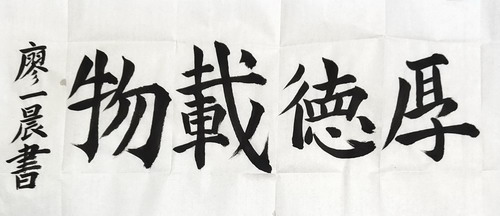 厚德載物
廖一晨書